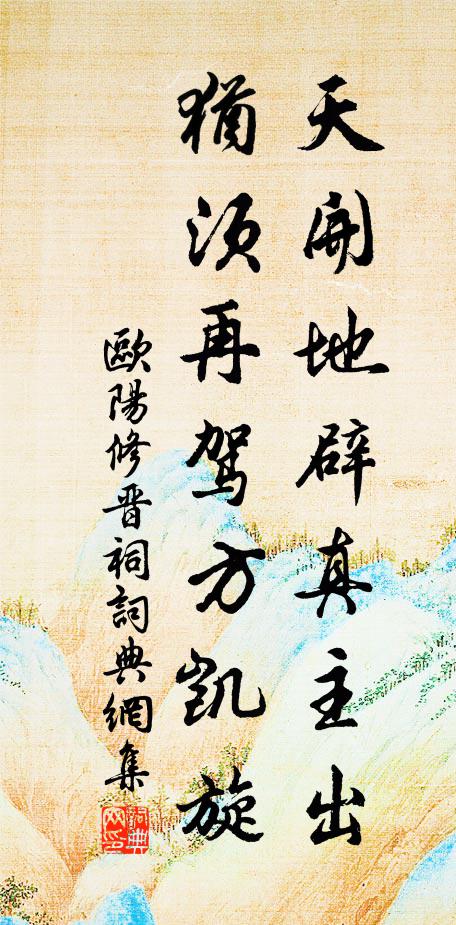 天開地辟真主出
猶須再駕方凱旋
歐陽修晋祠詞典網集
詞典網印